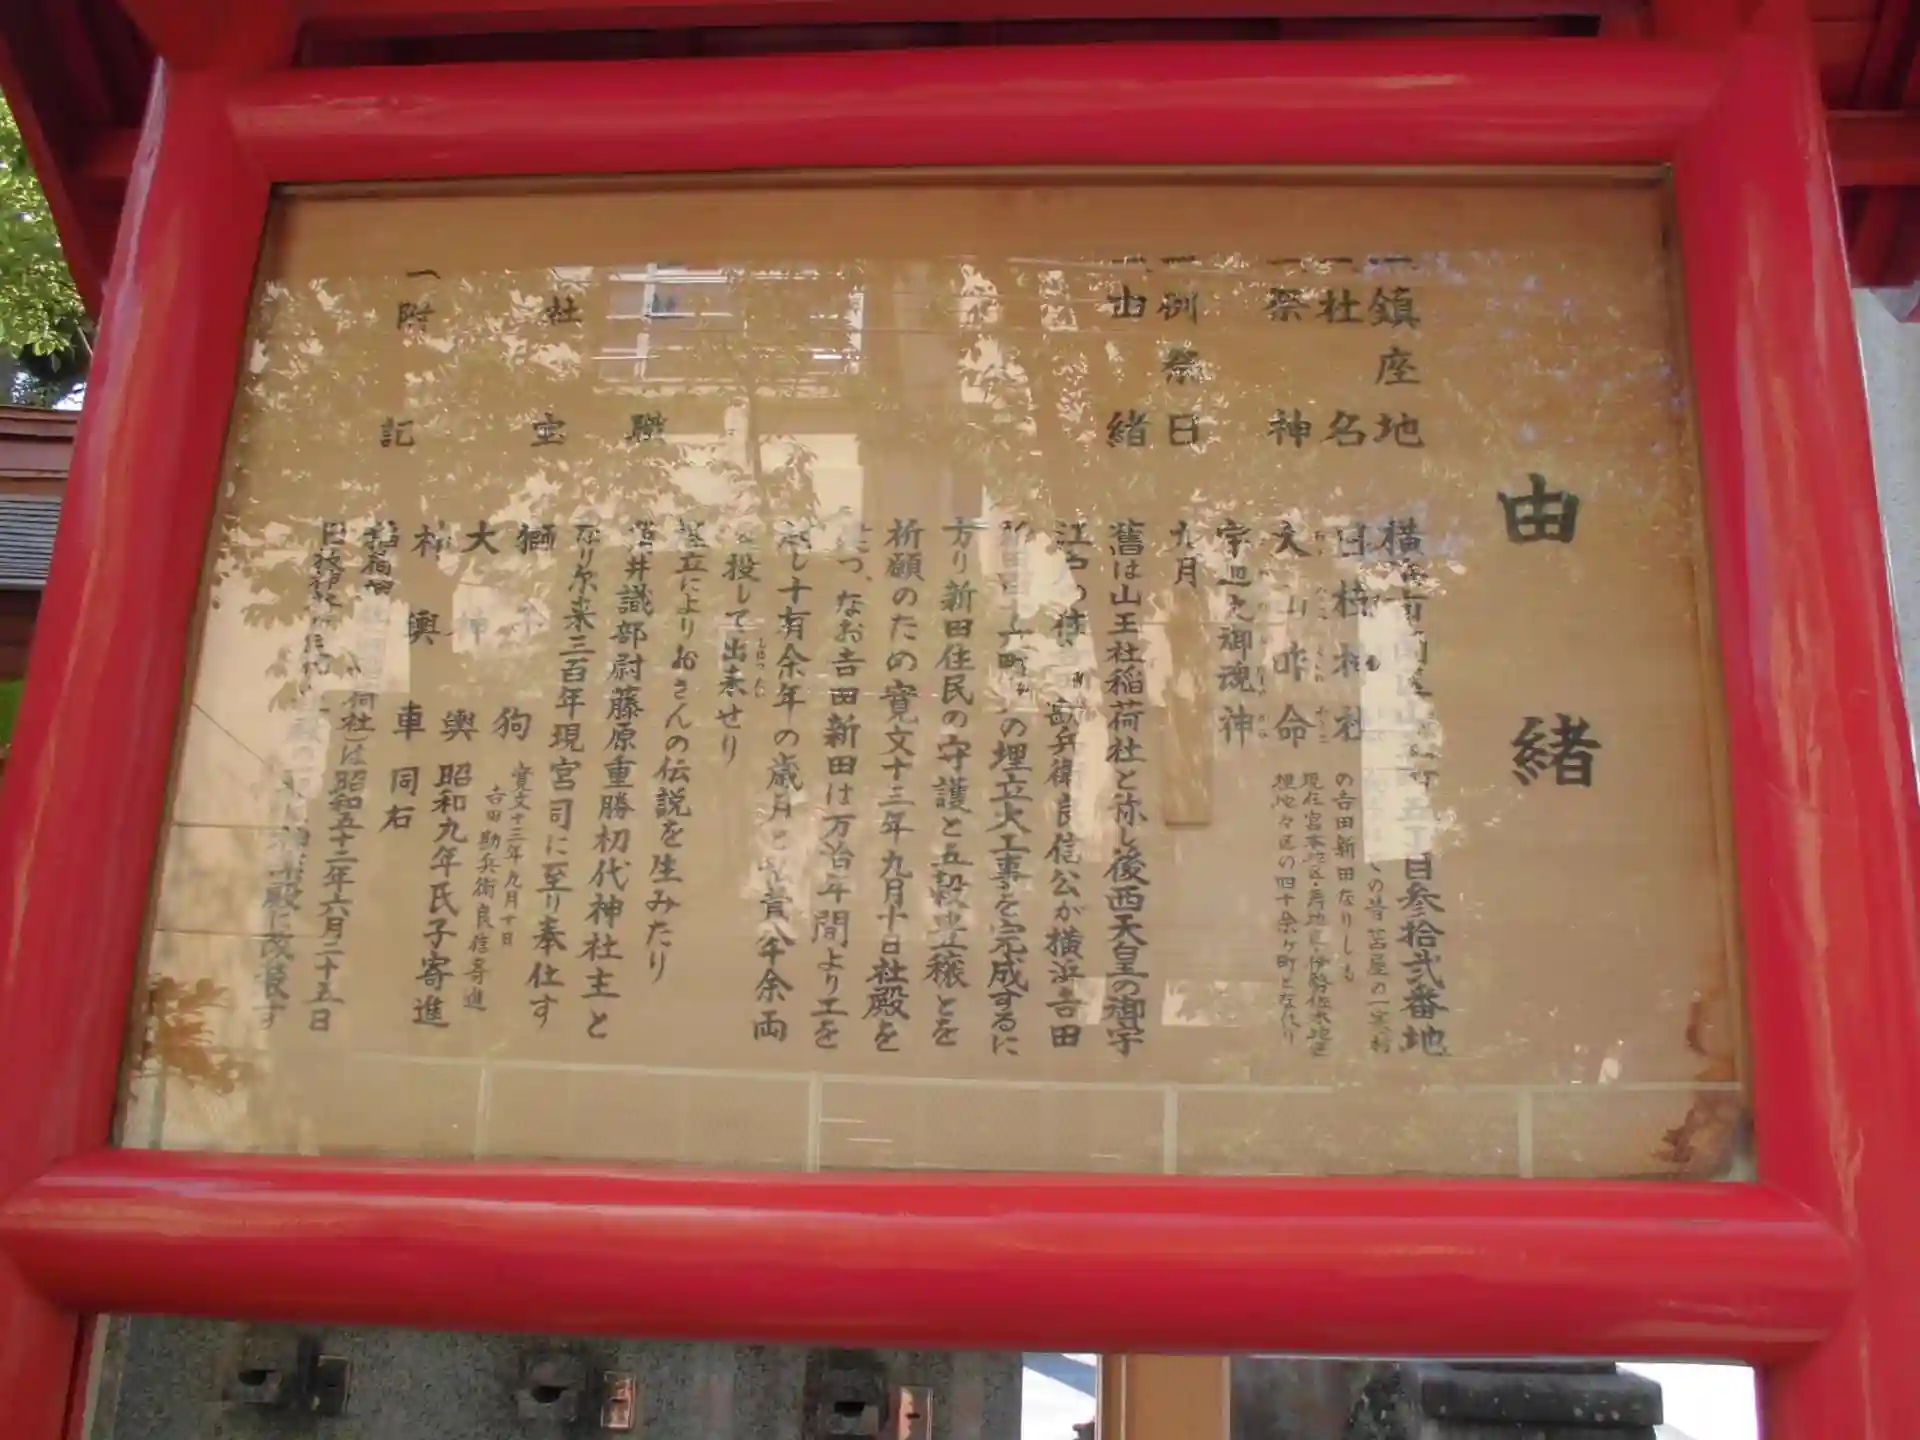 由緒
一鎮座地 横浜市南区山王町五丁目参拾弐番地
一社名 日枝神社
の昔苫屋の一寒村
の吉田新田なりしも
現在宮本地区・寿地区・伊勢佐木地区
埋地々区の四十余ヶ町となれり
一祭神 大山咋命
宇迦之御魂神
一例祭日 九月
一由緒 舊は山王社稲荷社と称し後西天皇の御宇
江戸の住 勘兵衛良信公が横浜吉田
新田四十六町 の埋立大工事を完成するに
方り新田住民の守護と五穀豊穣とを
祈願のため寛文十三年九月十日社殿を
つ、なお吉田新田は万治年間より工を
起し十有余年の歳月と 費八千余両
を投じて出来せり
によりおさんの伝説を生みたり
職 井識部尉藤原重勝初代神社主と
なり尓来三百年現宮司に至り奉仕す
社宝 獅子 狗 寛文十三年九月十日
吉田勘兵衛良信寄進
大神輿 昭和九年氏子寄進
神輿車 同右
一附記 稲荷 荷社)は昭和五十二年六月二十五日
日枝神社 殿に改 す